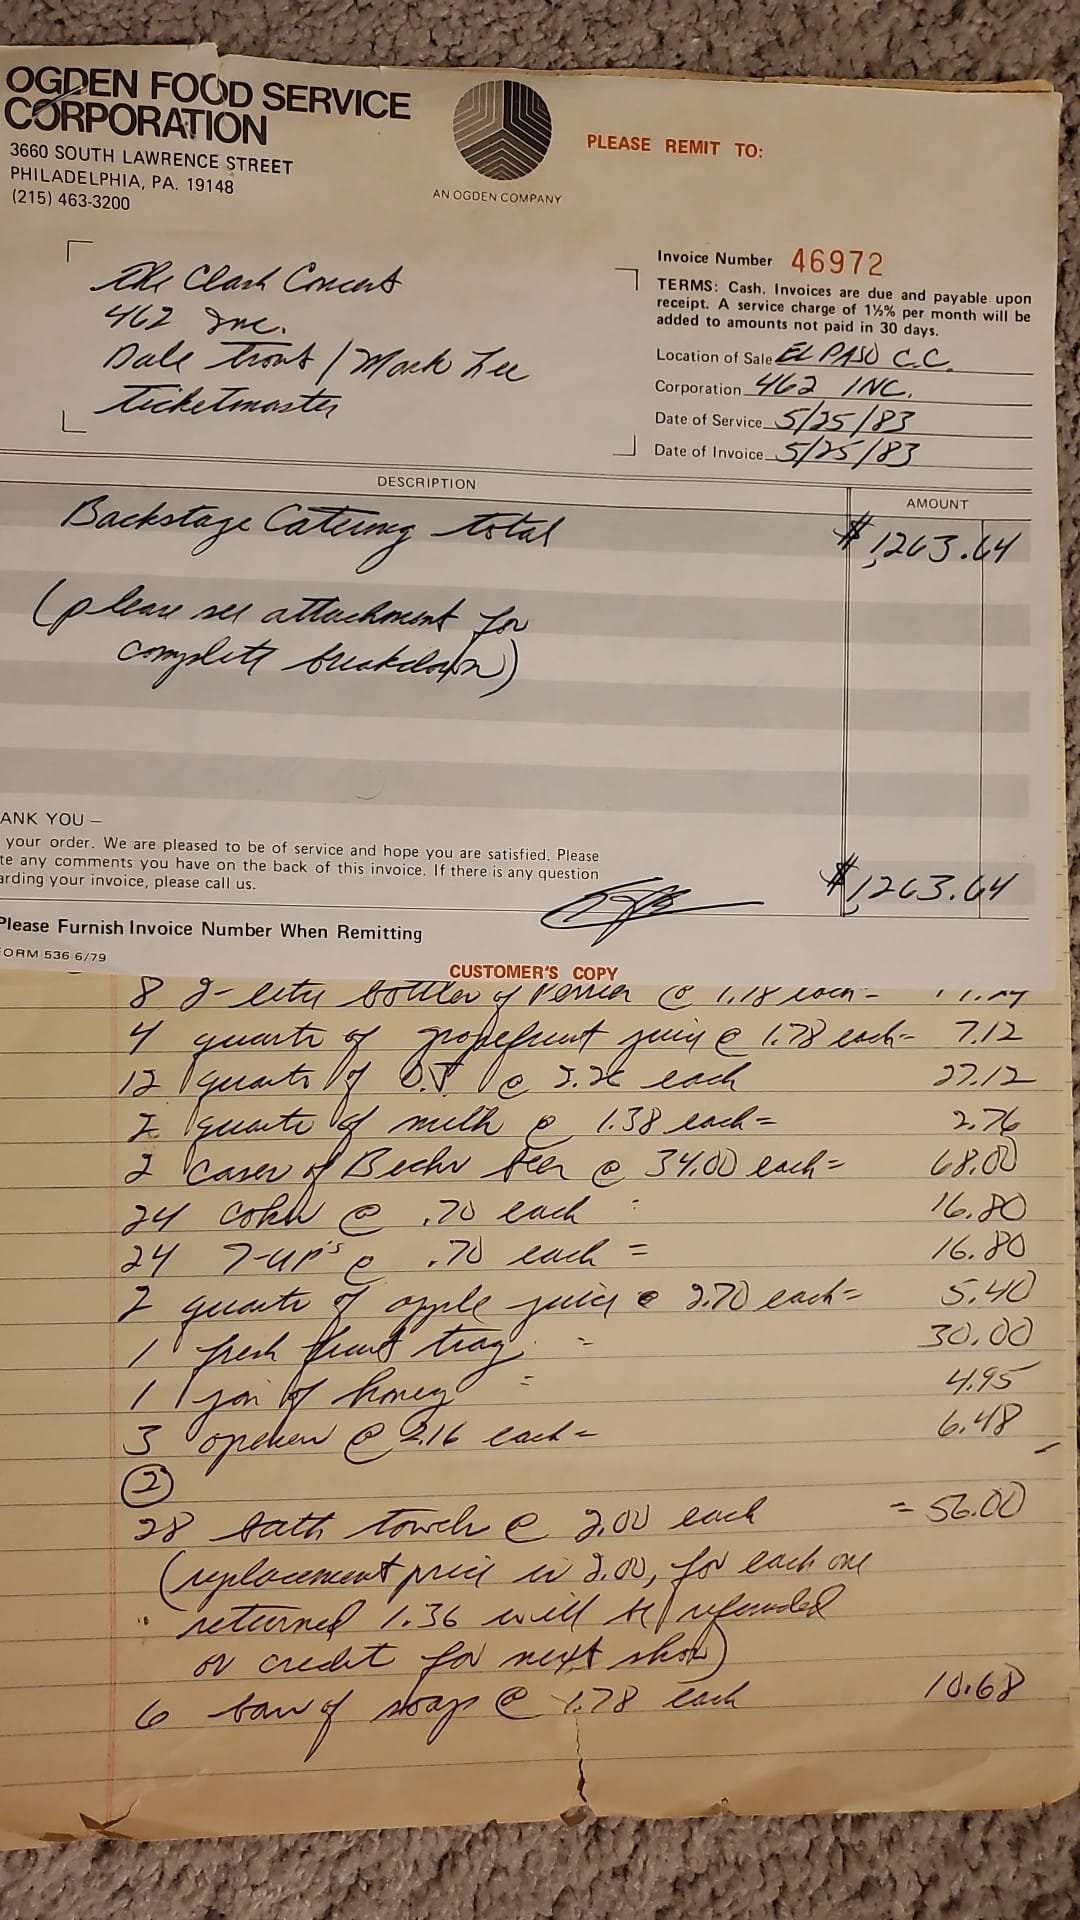 OGDEN FOOD SERVICE
CORPORATION
3660 SOUTH LAWRENCE STREET
PHILADELPHIA, PA. 19148
(215) 463-3200
AN OGDEN COMPANY
PLEASE REMIT TO:
The Clash Concert
462 Inc.
Dale Trout / Mark Lee
Ticketmaster
Invoice Number 46972
TERMS: Cash. Invoices are due and payable upon
receipt. A service charge of 1½% per month will be
added to amounts not paid in 30 days.
Location of Sale EL PASO C.C.
Corporation 462 INC.
Date of Service 5/25/83
Date of Invoice 5/25/83
DESCRIPTION
AMOUNT
Backstage Catering total $1,263.64
(please see attachment for
complete breakdown)
ANK YOU —
your order. We are pleased to be of service and hope you are satisfied. Please
te any comments you have on the back of this invoice. If there is any question
arding your invoice, please call us.
$1,263.64
Please Furnish Invoice Number When Remitting
FORM 536 6/79
CUSTOMER'S COPY
8 2-liter bottles of Perrier @ 1.18 each =
4 quarts of grapefruit juice @ 1.78 each = 7.12
12 quarts of O.J. @ 2.26 each 27.12
2 quarts of milk @ 1.38 each = 2.76
2 cases of Becks beer @ 34.00 each = 68.00
24 cokes @ .70 each = 16.80
24 7-UP's @ .70 each = 16.80
2 quarts of apple juice @ 2.70 each = 5.40
1 fresh fruit tray = 30.00
1 jar of honey = 4.95
3 openers @ 2.16 each = 6.48
2
28 bath towels @ 2.00 each = 56.00
(replacement price is 2.00, for each one
returned 1.36 will be refunded
or credit for next show)
6 bars of soap @ 1.78 each 10.68